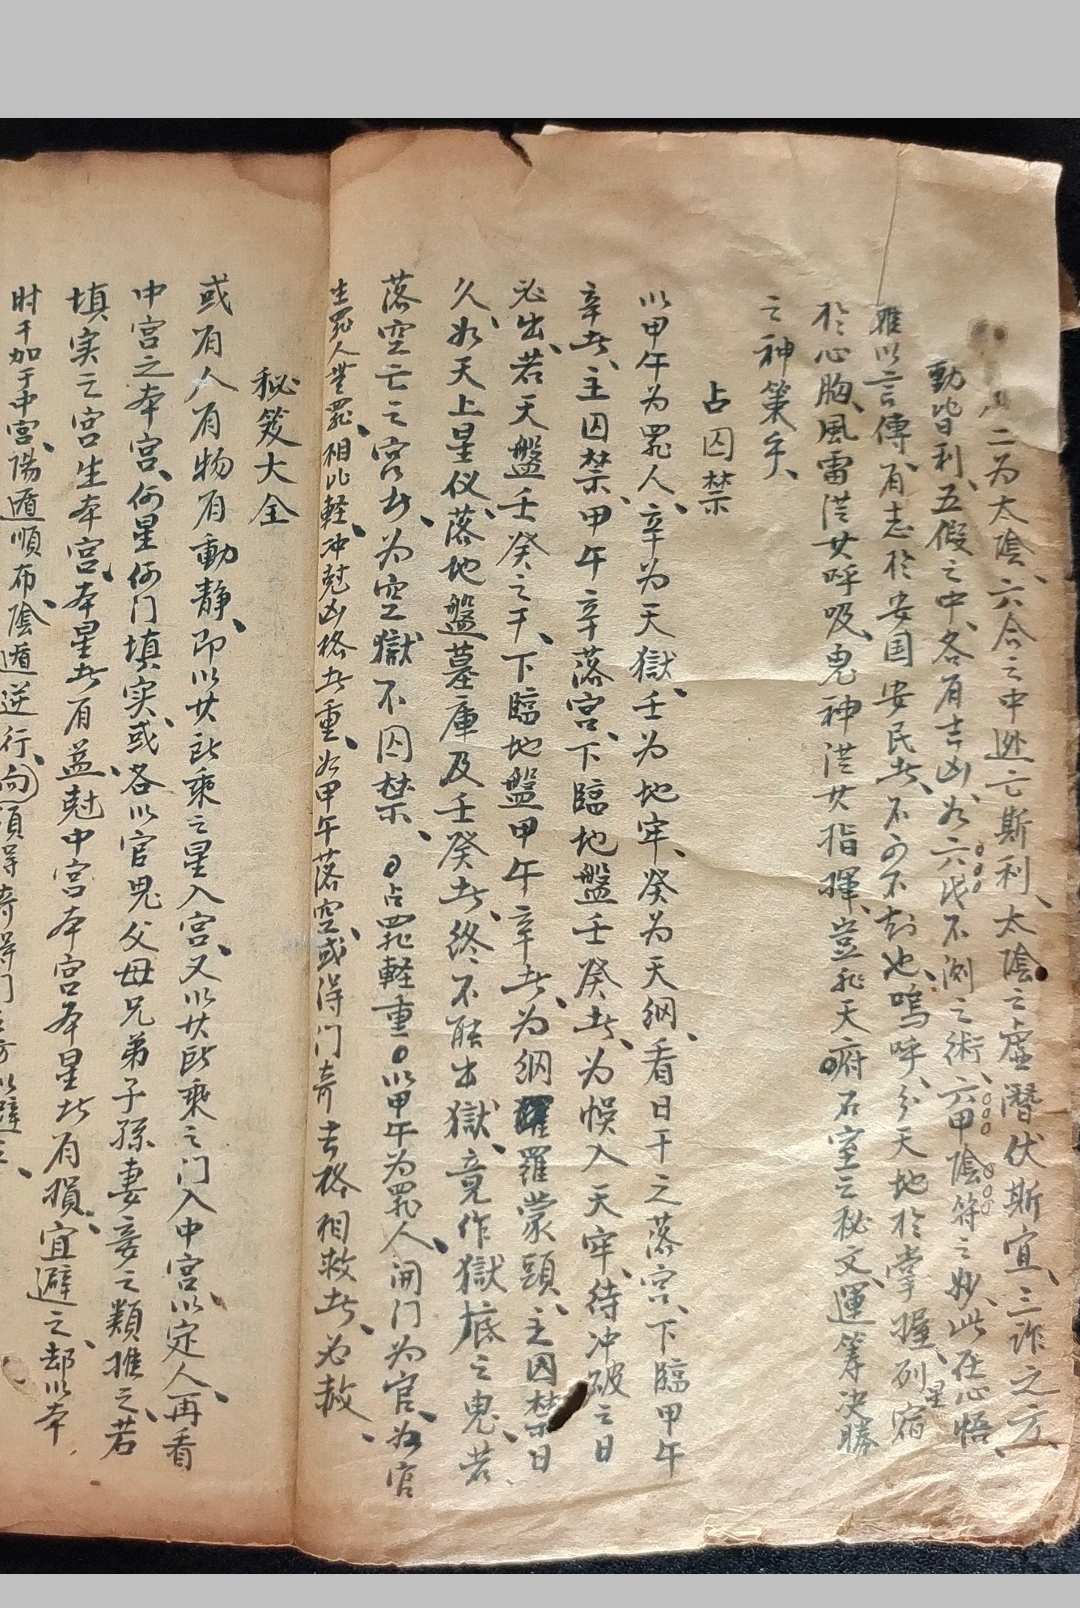 二为太陰六合之中逃亡斯利太陰之虛潛伏斯宜三詐之方
動皆利五假之中各有吉凶如六戊不測之術六甲陰符之妙此在心悟
难以言傳有志於安国安民者不可不知也嗚呼分天地於掌握列星宿
於心胸風雷從其呼吸鬼神從其指揮豈非天府石室之秘文運筹决勝
之神策乎
占囚禁
以甲午为罪人辛为天獄壬为地牢癸为天網看日干之落宫下臨甲午
辛者主囚禁甲午辛落宫下臨地盤壬癸者为悞入天牢待冲破之日
必出若天盤壬癸之干下臨地盤甲午辛者为網羅蒙頭主囚禁日
久如天上星仪落地盤墓庫及壬癸者終不能出獄竟作獄底之鬼若
落空亡之宫者为空獄不囚禁○占罪軽重○以甲午为罪人開门为官如官
生罪人無罪相比軽冲尅凶格者重如甲午落空或得门奇吉格相救者为赦
秘笈大全
或有人有物有動静即以其所乘之星入宫又以其所乘之门入中宫以定人再看
中宫之本宫何星何门填实或各以官鬼父母兄弟子孫妻妾之類推之若
填实之宫生本宫本星者有益尅中宫本宫本星者有損宜避之却以本
时干加于中宫陽遁順布陰遁逆行向須得奇得门